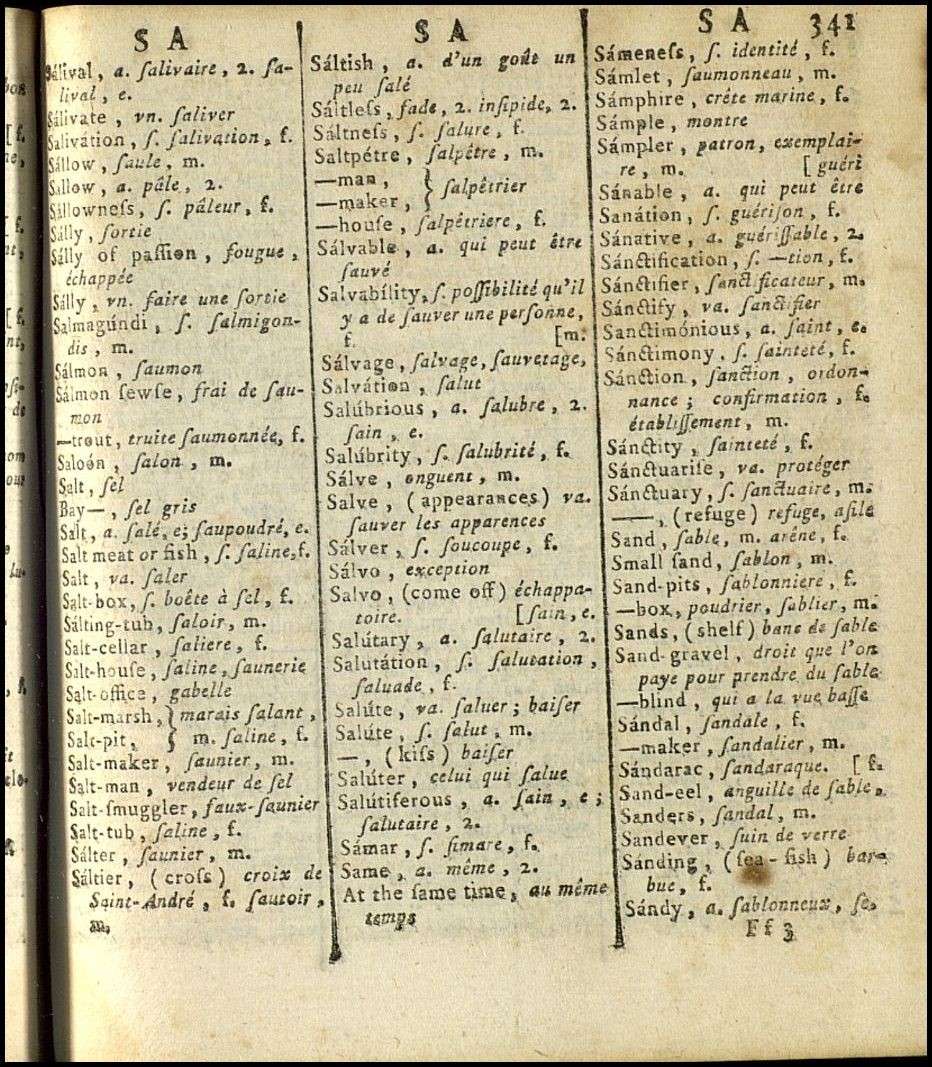 S A
Sálival, a. ſalivaire, 2. ſa-
lival, e.
Sálivate, vn. ſaliver
Salivátion, ſ. ſalivation, f.
Sállow, ſaule, m.
Sallow, a. pâle, 2.
Sállowneſs, ſ. pâleur, f.
Sálly, ſortie
Sálly of paſſion, fougue,
échappée
Sálly, vn. faire une ſortie
Salmagúndi, ſ. ſalmigon-
dis, m.
Sálmon, ſaumon
Sálmon ſewſe, frai de ſau-
mon
—trout, truite ſaumonnée, f.
Saloón, ſalon, m.
Salt, ſel
Bay—, ſel gris
Salt, a. ſalé, e; ſaupoudré, e.
Salt meat or fish, ſ. ſaline, f.
Salt, va. ſaler
Salt-box, ſ. boête à ſel, f.
Sálting-tub, ſaloir, m.
Salt-cellar, ſaliere, f.
Salt-houſe, ſaline, ſaunerie
Salt-office, gabelle
Salt-marsh, } marais ſalant,
Salt-pit, } m. ſaline, f.
Salt-maker, ſaunier, m.
Salt-man, vendeur de ſel
Salt-ſmuggler, faux-ſaunier
Salt-tub, ſaline, f.
Sálter, ſaunier, m.
Sáltier, (croſs) croix de
Saint-André, f. ſautoir,
m.
S A
Sáltish, a. d'un goût un
peu ſalé
Sáltleſs, fade, 2. inſipide, 2.
Sáltneſs, ſ. ſalure, f.
Saltpétre, ſalpêtre, m.
—man, } ſalpêtrier
—maker, }
—houſe, ſalpêtriere, f.
Sálvable, a. qui peut être
ſauvé
Salvabílity, ſ. poſſibilité qu'il
y a de ſauver une perſonne,
f. [m.
Sálvage, ſalvage, ſauvetage,
Salvátion, ſalut
Salúbrious, a. ſalubre, 2.
ſain, e.
Salúbrity, ſ. ſalubrité, f.
Sálve, onguent, m.
Salve, (appearances) va.
ſauver les apparences
Sálver, ſ. ſoucoupe, f.
Sálvo, exception
Salvo, (come off) échappa-
toire. [ſain, e.
Salútary, a. ſalutaire, 2.
Salutátion, ſ. ſalutation,
ſaluade, f.
Salúte, va. ſaluer; baiſer
Salúte, ſ. ſalut, m.
—, (kiſs) baiſer
Salúter, celui qui ſalue
Salútiferous, a. ſain, e;
ſalutaire, 2.
Sámar, ſ. ſimare, f.
Same, a. même, 2.
At the ſame time, au même
temps
S A 341
Sámeneſs, ſ. identité, f.
Sámlet, ſaumonneau, m.
Sámphire, crête marine, f.
Sámple, montre
Sámpler, patron, exemplai-
re, m. [guéri
Sánable, a. qui peut être
Sanátion, ſ. guériſon, f.
Sánative, a. guériſſable, 2.
Sánctification, ſ. —tion, f.
Sánctifier, ſanctificateur, m.
Sánctify, va. ſanctifier
Sanctimónious, a. ſaint, e.
Sánctimony, ſ. ſainteté, f.
Sánction, ſanction, ordon-
nance; confirmation, f.
établiſſement, m.
Sánctity, ſainteté, f.
Sánctuariſe, va. protéger
Sánctuary, ſ. ſanctuaire, m.
——, (refuge) refuge, aſile
Sand, ſable, m. arêne, f.
Small ſand, ſablon, m.
Sand-pits, ſablonniere, f.
—box, poudrier, ſablier, m.
Sands, (shelf) banc de ſable
Sand-gravel, droit que l'on
paye pour prendre du ſable
—blind, qui a la vue baſſe
Sándal, ſandale, f.
—maker, ſandalier, m.
Sándarac, ſandaraque. [f.
Sand-eel, anguille de ſable,
Sanders, ſandal, m.
Sandever, ſuin de verre
Sánding, (ſea-fish) bar-
bue, f.
Sándy, a. ſablonneux, ſe.
F f 3